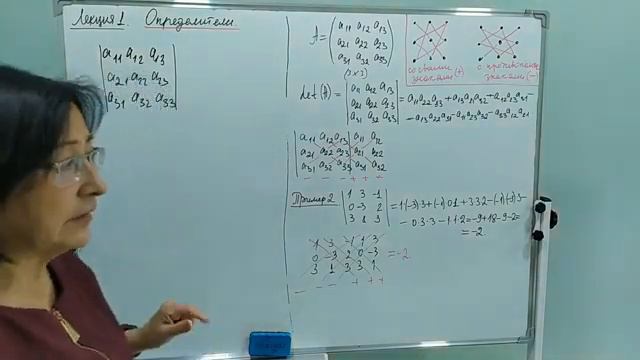 Лекция 1. Определители.
a11 a12 a13
a21 a22 a23
a31 a32 a33
A = a11 a12 a13
a21 a22 a23
a31 a32 a33
(3×3)
со своими знаками (+)
с противополож знаками (−)
det(A) = a11 a12 a13
a21 a22 a23
a31 a32 a33
= a11a22a33 + a13a21a32 + a12a23a31 −
− a13a22a31 − a11a23a32 − a33a12a21
a11 a12 a13 a11 a12
a21 a22 a23 a21 a22
a31 a32 a33 a31 a32
− − − + + +
Пример 2
1 3 -1
0 -3 2
3 1 3
= 1·(-3)·3+(-1)·0·1+3·3·2-(-1)·(-3)·3-
- 0·3·3-1·1·2=-9+18-9-2=
= -2.
1 3 -1 1 3
0 -3 2 0 -3
3 1 3 3 1
= -2
− − − + + +